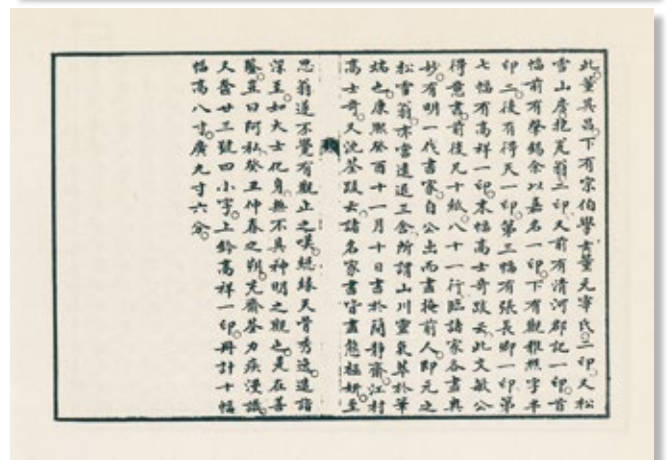 此。董其昌。下有宗伯學士董元宰氏二印。又松
雪山房抱甕翁二印。又前有清河郡記一印。首
幅前有榮錫余以嘉名一印。下有觀雅熙字半
印。二後有得天一印。第三幅有張長卿一印。第
七幅有高祥一印。末幅高士奇跋云。此文敏公
得意書。前後凡十紙。八十一行。臨諸家各盡其
妙。有明一代書家。自公出而盡掩前人。即元之
松雪翁。亦當遠退三舍。所謂山川靈氣萃於筆
端也。康熙癸酉十一月十日書於簡靜齋。江村
高士奇。又沈荃跋云。諸名家書皆盡態極妍。至
思翁遂不覺有觀止之嘆。總緣天骨秀逸。造詣
深至。如大士化身。無不具神明之觀也。是在善
鑒。豈曰阿私。癸丑仲春之朔。充齋荃力疾漫識。
又卷廿三號四小字。上鈐高祥一印。冊計十幅。
幅高八寸。廣九寸六分。